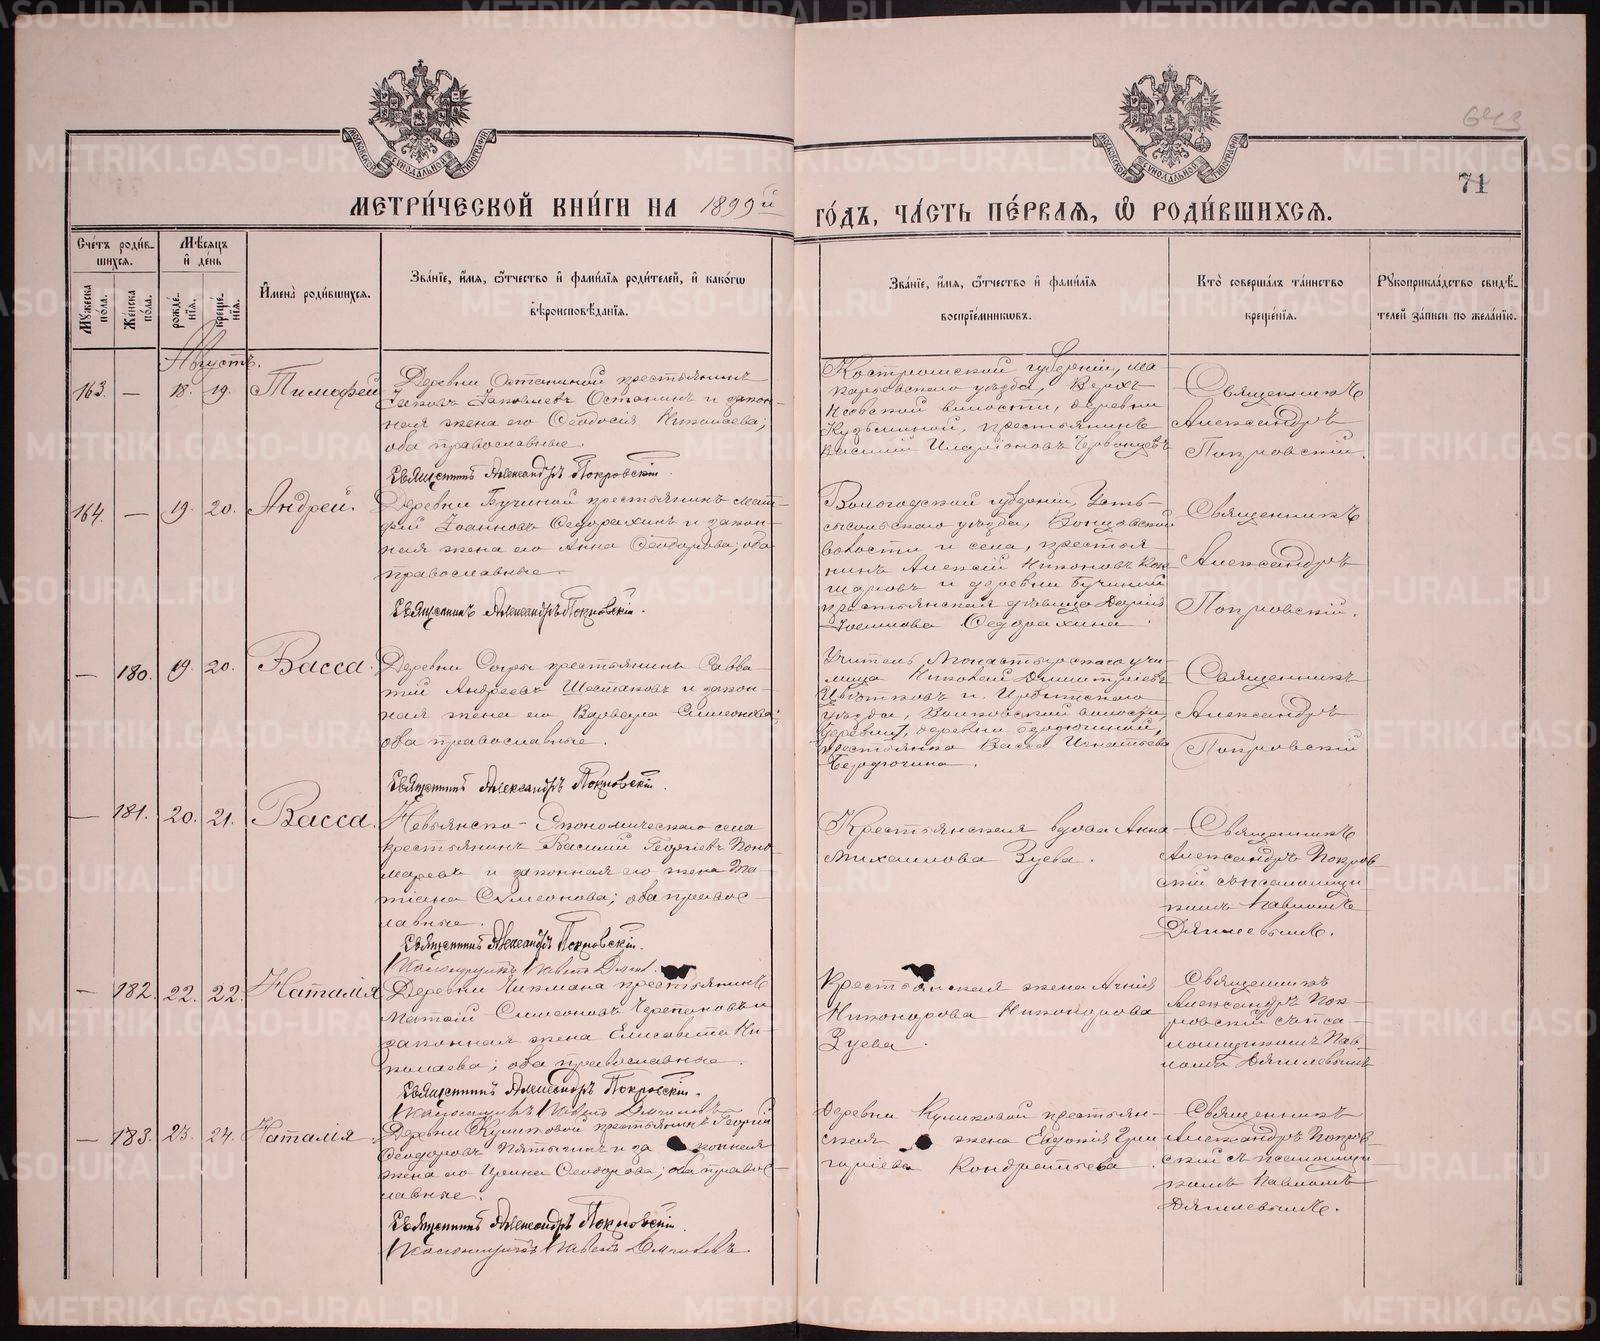 643
71
МОСКОВСКОЙ СѴНОДАЛЬНОЙ ТИПОГРАФІИ
МОСКОВСКОЙ СѴНОДАЛЬНОЙ ТИПОГРАФІИ
МЕТРИ́ЧЕСКОЙ КНИ́ГИ НА 1899й
ГО́ДЪ, ЧА́СТЬ ПЕ́РВАЯ, Ѽ РОДИ́ВШИХСЯ.
Сче́тъ роди́в-
шихся.
Мꙋжеска по́ла.
Же́нска по́ла.
Мѣ́сяцъ
и҆ де́нь
рожде́-
нїя.
креще́-
нїя.
И҆мена̀ роди́вшихся.
Зва́нїе, и҆́мя, ѻ҆́тчество и҆ фами́лїя роди́телей, и҆ како́гѡ
вѣроисповѣ́данїя.
Зва́нїе, и҆́мя, ѻ҆́тчество и҆ фами́лїя
воспрїе́мникѡвъ.
Кто̀ соверша́лъ та́инство
креще́нїя.
Рꙋкоприкла́дство свидѣ́-
телей за́писи по жела́нїю.
Августъ.
163. — 18. 19. Тимофей
Деревни Останиной крестьянинъ
Іаковъ Іаковлевъ Останинъ и закон-
ная жена его Ѳеодосія Николаева;
оба православные.
Священникъ Александръ Покровскій.
Костромской губерніи, Ма-
карьевскаго уѣзда, Верх-
волости, деревни
Кузьминой, крестьянинъ
Василій Иларіоновъ
Священникъ
Александръ
Покровскій.
164. — 19. 20. Андрей.
Деревни Бучиной крестьянинъ Мат-
фей Іоанновъ Ѳедорахинъ и закон-
ная жена его Анна Ѳеодорова; оба
православные.
Священникъ Александръ Покровскій.
Вологодской губерніи, Усть-
сысольскаго уѣзда,
волости и села, крестья-
нинъ Алексій Никоновъ
и деревни Бучиной
крестьянская дѣвица Дарія
Іоаннова Ѳедорахина.
Священникъ
Александръ
Покровскій.
— 180. 19. 20. Васса.
Деревни Согры крестьянинъ Савва-
тій Андреевъ Шестаковъ и закон-
ная жена его Варвара Симеонова;
оба православные.
Священникъ Александръ Покровскій.
Учитель Монастырскаго учи-
лища Николай Димитріевъ
Цвѣтковъ и Ирбитскаго
уѣзда, Волковской волости,
деревни Бердюгиной,
крестьянка Васса Игнатьева
Бердюгина.
Священникъ
Александръ
Покровскій
— 181. 20. 21. Васса.
Невьянско-Экономическаго села
крестьянинъ Василій Георгіевъ Поно-
маревъ и законная его жена Та-
тіана Симеонова; оба правос-
лавные.
Священникъ Александръ Покровскій.
Псаломщикъ Павелъ
Крестьянская вдова Анна
Михаилова Зуева.
Священникъ
Александръ Покров-
скій съ псаломщи-
комъ Павломъ
Дягилевымъ.
— 182. 22. 22. Наталія
Деревни Чикмана крестьянинъ
Матѳій Симеоновъ Черепановъ и
законная жена Елисавета Ни-
колаева; оба православные.
Священникъ Александръ Покровскій.
Псаломщикъ Павелъ Дягилевъ
Крестьянская жена Агнія
Никонорова Никонорова
Зуева.
Священникъ
Александръ Пок-
ровскій съ пса-
ломщикомъ Пав-
ломъ Дягилевымъ
— 183. 23. 24. Наталія.
Деревни Куликовой крестьянинъ Георгій
Ѳеодоровъ Пятыгинъ и законная
жена его Ирина Ѳеодорова; оба правос-
лавные.
Священникъ Александръ Покровскій.
Псаломщикъ Павелъ Дягилевъ.
Деревни Куликовой крестьян-
ская жена Евдокія Гри-
горіева Кондратьева.
Священникъ
Александръ Покров-
скій съ псаломщи-
комъ Павломъ
Дягилевымъ.
METRIKI.GASO-URAL.RU